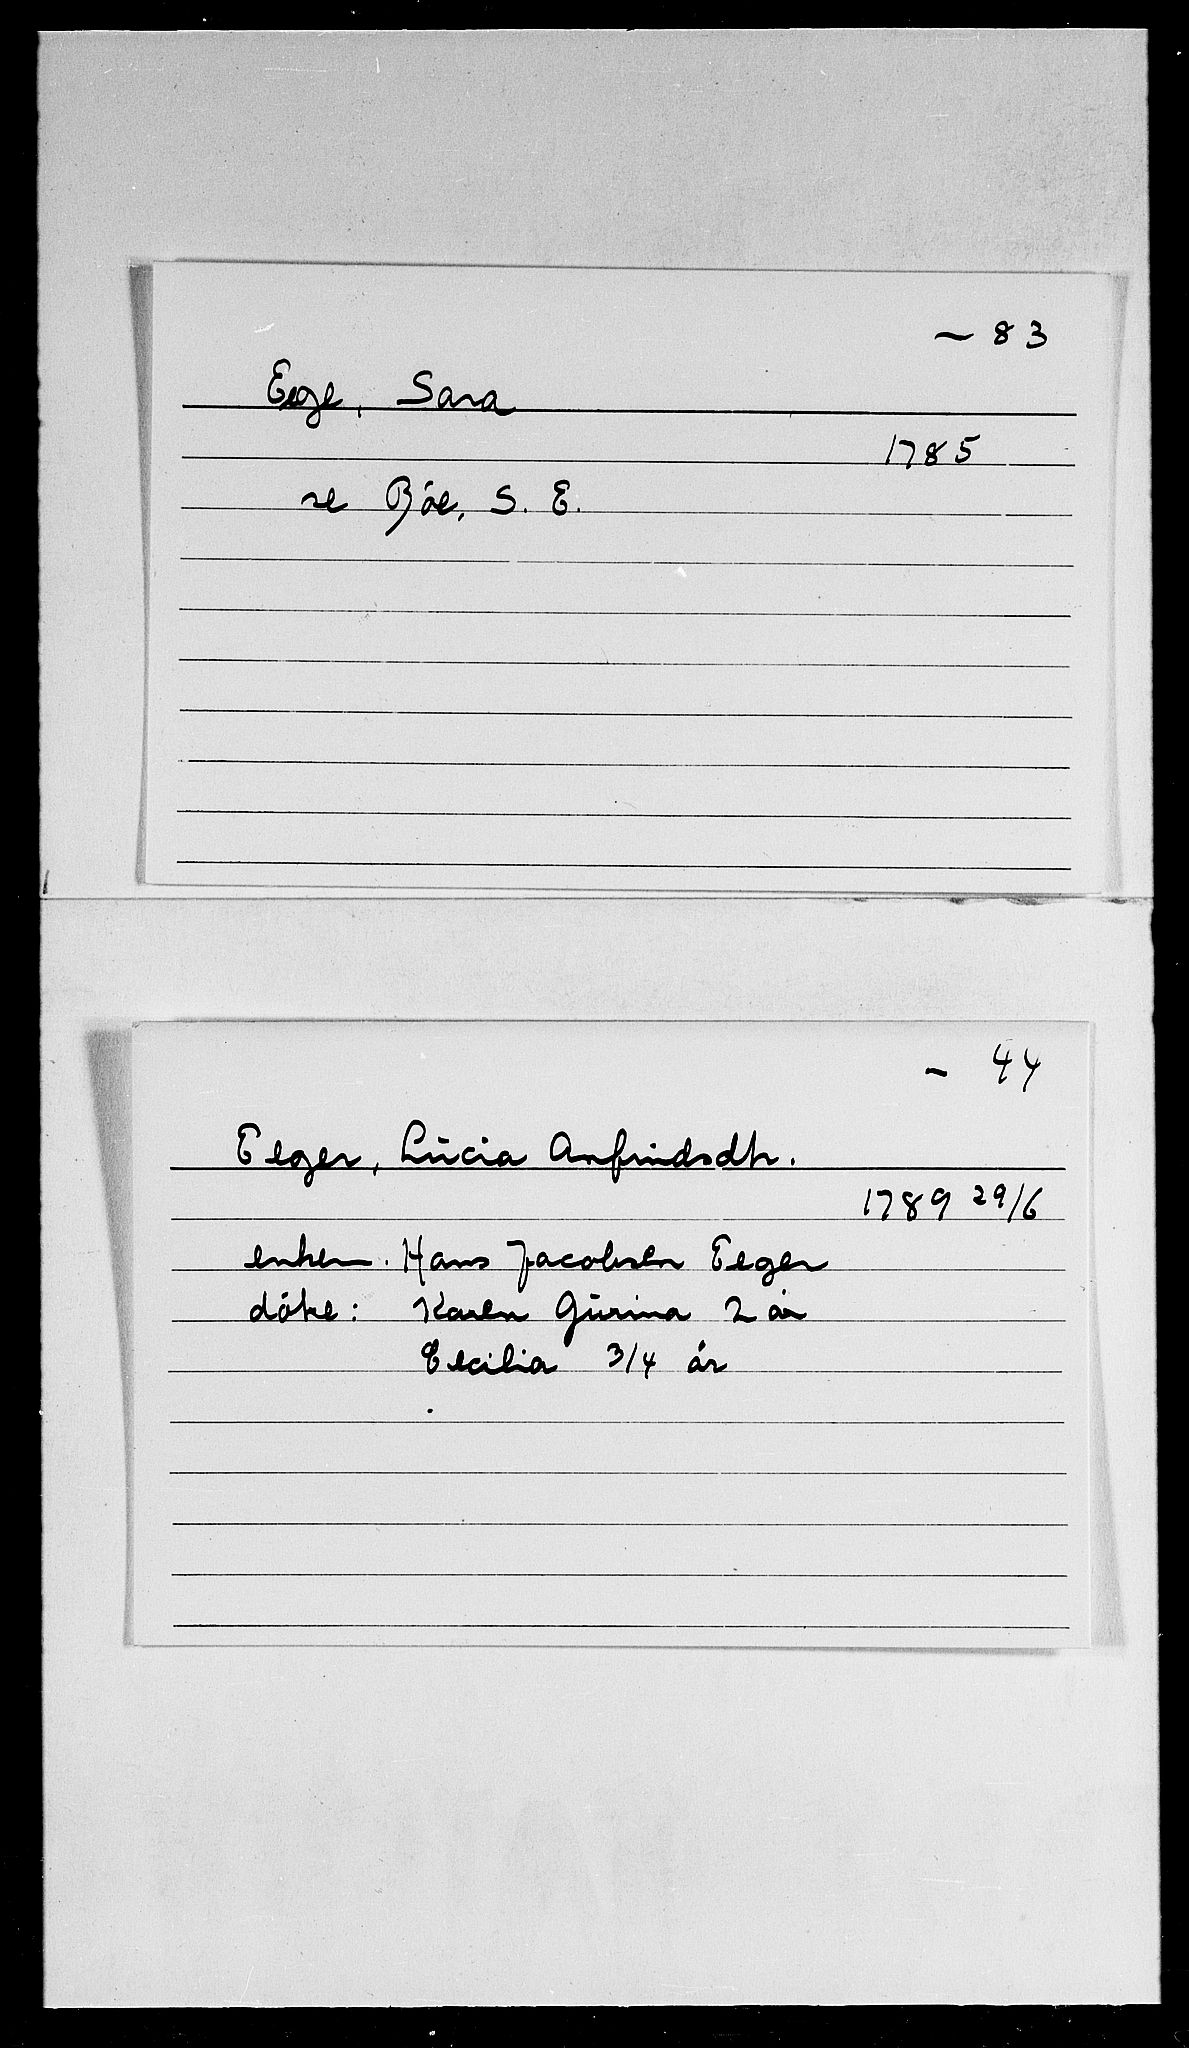 ~ 83
Eege, Sara
1785
se Böe, S. E.
- 44
Eeger, Lucia Anfindsdtr.
1789 29/6
enkem. Hans Jacobsen Eeger
døtre: Karen Gurina 2 år
Cecilia 3/4 år